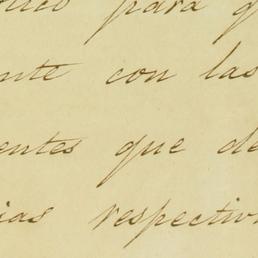 para q
ente con las
entes que de
ias respectiv